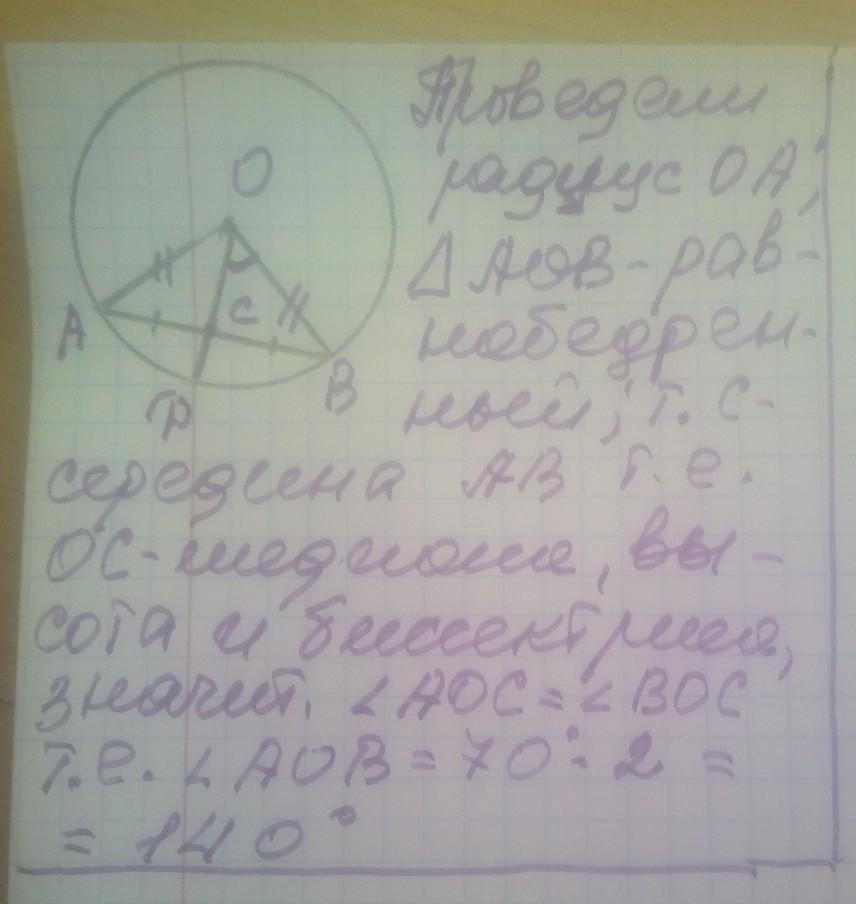 O
A
C
B
D
Провели
радиус OA,
△AOB - рав-
нобедрен-
ный; т. C -
середина AB т.е.
OC - медиана, вы-
сота и биссектриса,
значит. ∠AOC = ∠BOC
т.е. ∠AOB = 70° · 2 =
= 140°